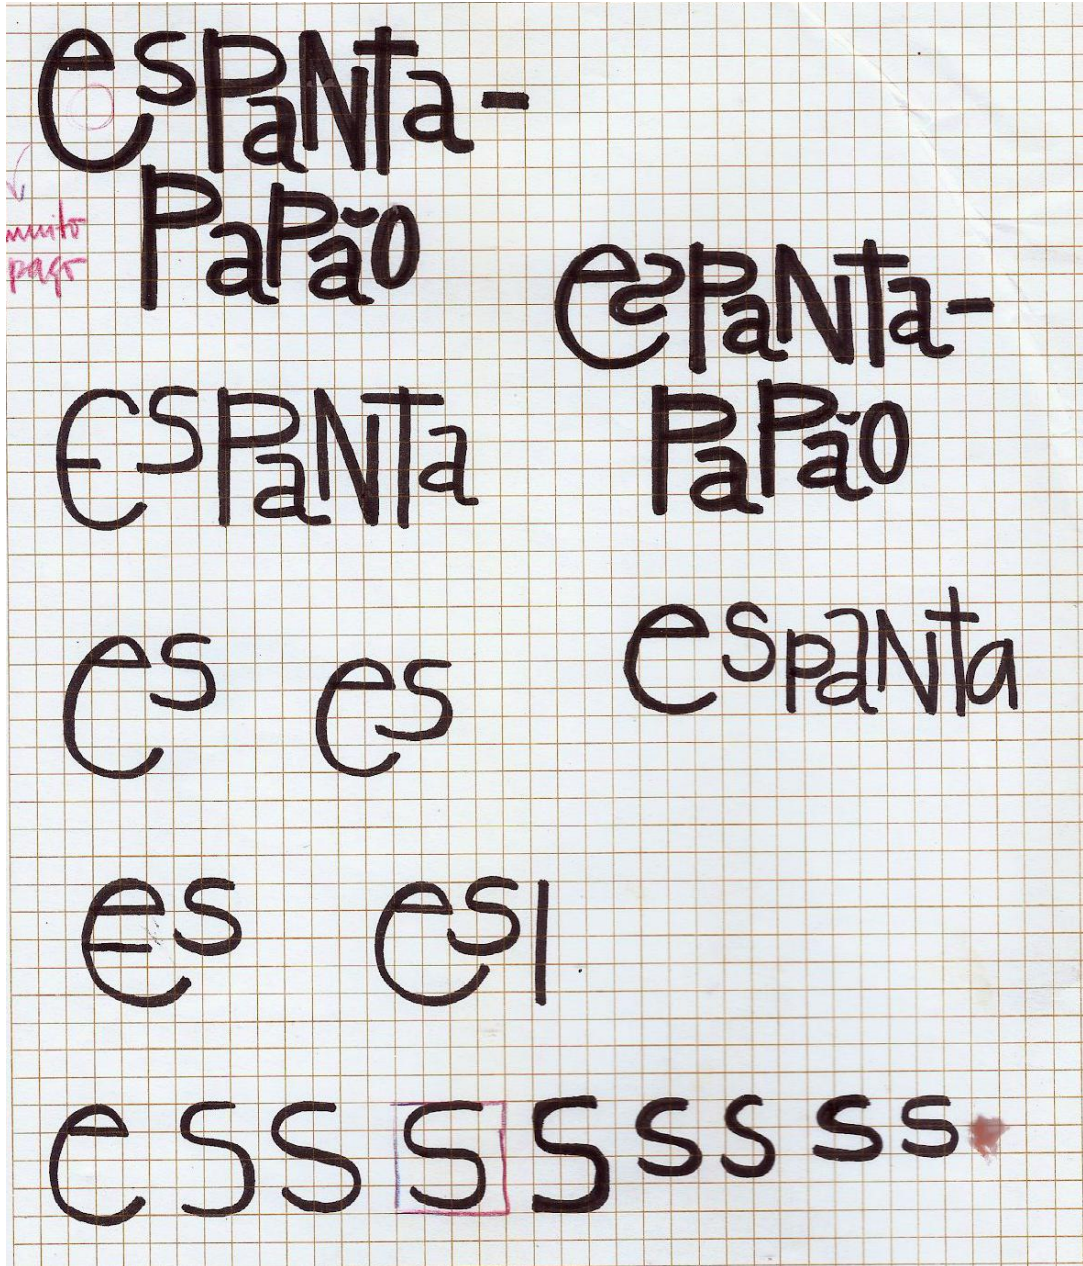 esPaNta-
PaPão
muito
pago
esPaNta-
PaPão
esPaNta
espaNta
es es
es esl
ess s s ss ss